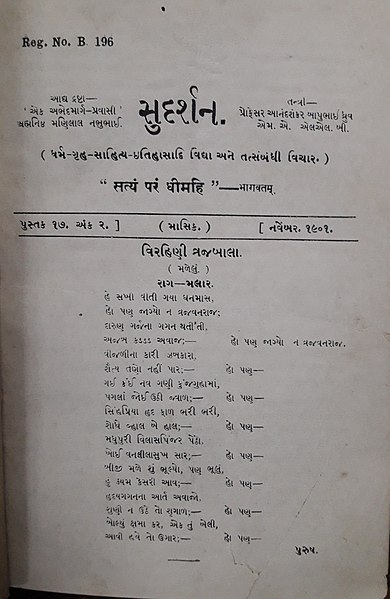 Reg. No. B 196
આદ્ય દ્રષ્ટા—
'એક અભેદમાર્ગ-પ્રવાસી'
બ્રહ્મનિષ્ઠ મણિલાલ નભુભાઈ.
સુદર્શન.
તન્ત્રી—
પ્રોફેસર આનંદશંકર બાપુભાઈ ધ્રુવ
એમ. એ. એલએલ. બી.
( ધર્મ-ગૃહ-સાહિત્ય-ઇતિહાસાદિ વિદ્યા અને તત્સંબંધી વિચાર. )
“ सत्यं परं धीमहि ”—ભાગવતમ્.
પુસ્તક ૧૭. અંક ૨. ]
( માસિક. )
[ નવેંબર. ૧૯૦૧.
વિરહિણી વ્રજબાલા.
( મળેલું. )
રાગ—મલાર.
હે સખી વીતી ગયા ધનમાસ,
હો પણ જાગ્યો ન વ્રજવનરાજ;
દારુણ ગર્જના ગગન થતી'તી,
અજબ કડડડ અવાજ;— હો પણ જાગ્યો ન વ્રજવનરાજ.
વીજળીના કારી ઝબકારા,
શૈત્ય તણો નહીં પાર;— હો પણ—
ગઈ કંઈ નવ ગણી કુંજગુહામાં,
પગલાં જોઈ ઉઠી જ્વાળ;— હો પણ—
સિંહપ્રિયા હૃદ ફાળ ભરી ભરી,
શોધે વ્હાલ બે હાલ;— હો પણ—
મધુપુરી વિલાસપિંજર પેઠો,
ખોઈ વનલીલાસુખ સાર;— હો પણ—
બીજી મળે શું ભૂલ્યો, પણ ભૂલું,
હું ક્યમ કેસરી આવ;— હો પણ—
હૃદયગગનના આર્ત અવાજો.
સુણી ન ઉઠે તો શૃગાળ;— હો પણ—
બોલ્યું ક્ષમા કર, એક તું બેલી,
આવી હવે તો ઉગાર;— હો પણ—
પુરુષ.